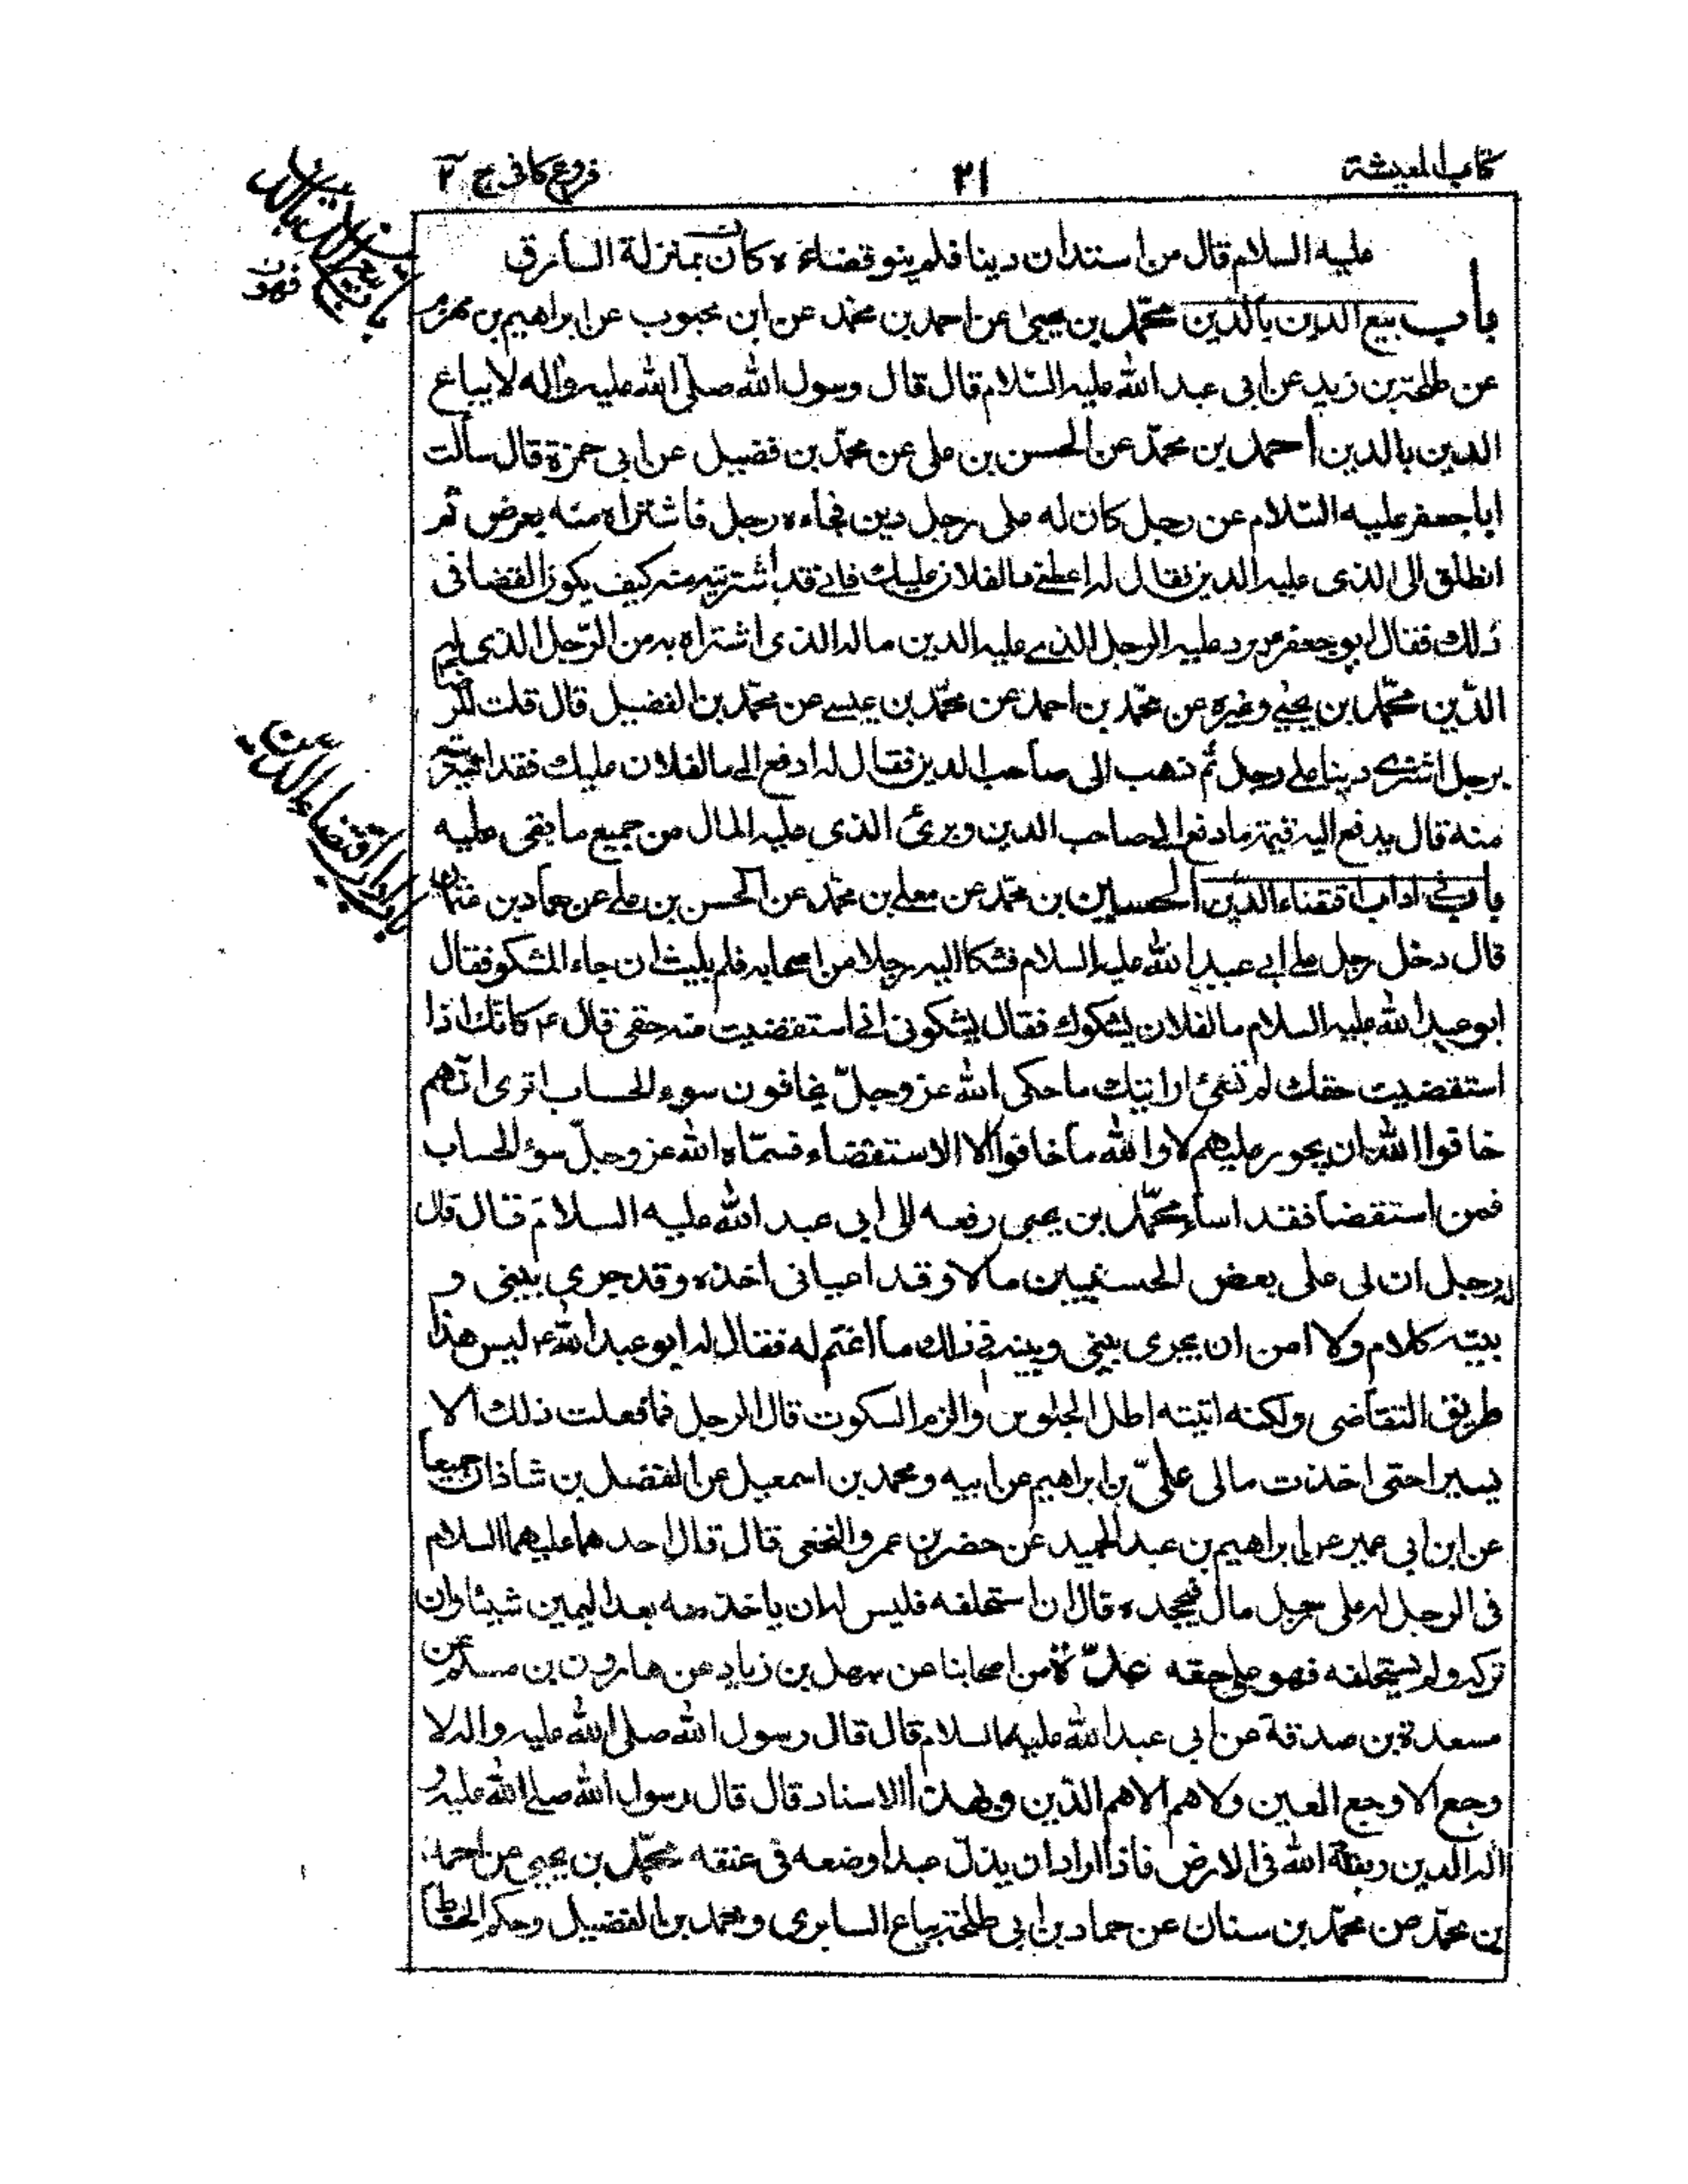 كتاب المعيشة
٢١
فروع كافى ج ٢
عليه السلام قال من استدان دينا فلم ينو قضاءه كان بمنزلة السارق
باب بيع الدين بالدين محمّد بن يحيى عن احمد بن محمد عن ابن محبوب عن ابراهيم بن مهزم
عن طلحة بن زيد عن ابى عبد الله عليه السّلام قال قال رسول الله صلّى الله عليه واله لا يباع
الدين بالدين احمد بن محمّد عن الحسن بن على عن محمّد بن فضيل عن ابى حمزة قال سألت
ابا جعفر عليه السّلام عن رجل كان له على رجل دين فجاءه رجل فاشتراه منه بعرض ثم
انطلق الى الذى عليه الدين فقال له اعطنى ما لفلان عليك فانى قد اشتريته منه كيف يكون القضا فى
ذلك فقال ابو جعفر ع يرد عليه الرجل الذى عليه الدين ماله الذى اشتراه به من الرّجل الذى له
الدّين محمّد بن يحيى وغيره عن محمّد بن احمد عن محمّد بن عيسى عن محمّد بن الفضيل قال قلت للرضا
رجل اشترى دينا على رجل ثم ذهب الى صاحب الدين فقال له ادفع الى ما لفلان عليك فقد اشتريته
منه قال يدفع اليه قيمة ما دفع الى صاحب الدين وبرئ الذى عليه المال من جميع ما بقى عليه
باب فى اداب اقتضاء الدّين الحسين بن محمّد عن معلى بن محمّد عن الحسن بن على عن حماد بن عثمان
قال دخل رجل على ابى عبد الله عليه السلام فشكا اليه رجلا من اصحابه فلم يلبث ان جاء المشكو فقال
ابو عبد الله عليه السلام ما لفلان يشكوك فقال يشكونى انى استقضيت منه حقى قال ع كانك اذا
استقضيت حقك لم تسئ ارايتك ما حكى الله عز وجلّ يخافون سوء الحساب اترى انّهم
خافوا الله ان يجور عليهم لا والله ما خافوا الا الاستقضاء فسمّاه الله عز وجلّ سوء الحساب
فمن استقضا فقد اساء محمّد بن يحيى رفعه الى ابى عبد الله عليه السلام قال قال
له رجل ان لى على بعض الحسنيين مالا وقد اعيانى اخذه وقد جرى بينى و
بينه كلام ولا امن ان يجرى بينى وبينه فى ذلك ما اغتم له فقال له ابو عبد الله ع ليس هذا
طريق التقاضى ولكنه ائيته اطل الجلوس والزم السكوت قال الرجل فما فعلت ذلك الا
يسيرا حتى اخذت مالى علىّ بن ابراهيم عن ابيه ومحمد بن اسمعيل عن الفضل بن شاذان جميعا
عن ابن ابى عمير عن ابراهيم بن عبد الحميد عن خضر بن عمرو النخعى قال قال احدهما عليهما السلام
فى الرجل له على رجل مال فيجحده قال ان استحلفه فليس له ان ياخذ منه بعد اليمين شيئا وان
تركه ولم يستحلفه فهو على حقه عدّة من اصحابنا عن سهل بن زياد عن هارون بن مسلم عن
مسعدة بن صدقة عن ابى عبد الله عليه السلام قال قال رسول الله صلى الله عليه واله لا
وجع الا وجع العين ولا هم الا هم الدّين وبهذا الاسناد قال قال رسول الله صلى الله عليه و
اله الدين ربقة الله فى الارض فاذا اراد ان يذل عبدا وضعه فى عنقه محمّد بن يحيى عن احمد
بن محمّد عن محمّد بن سنان عن حماد بن ابى طلحة بياع السابرى ومحمد بن الفضيل وحكم الحناط
باب فى اداب اقتضاء الدين